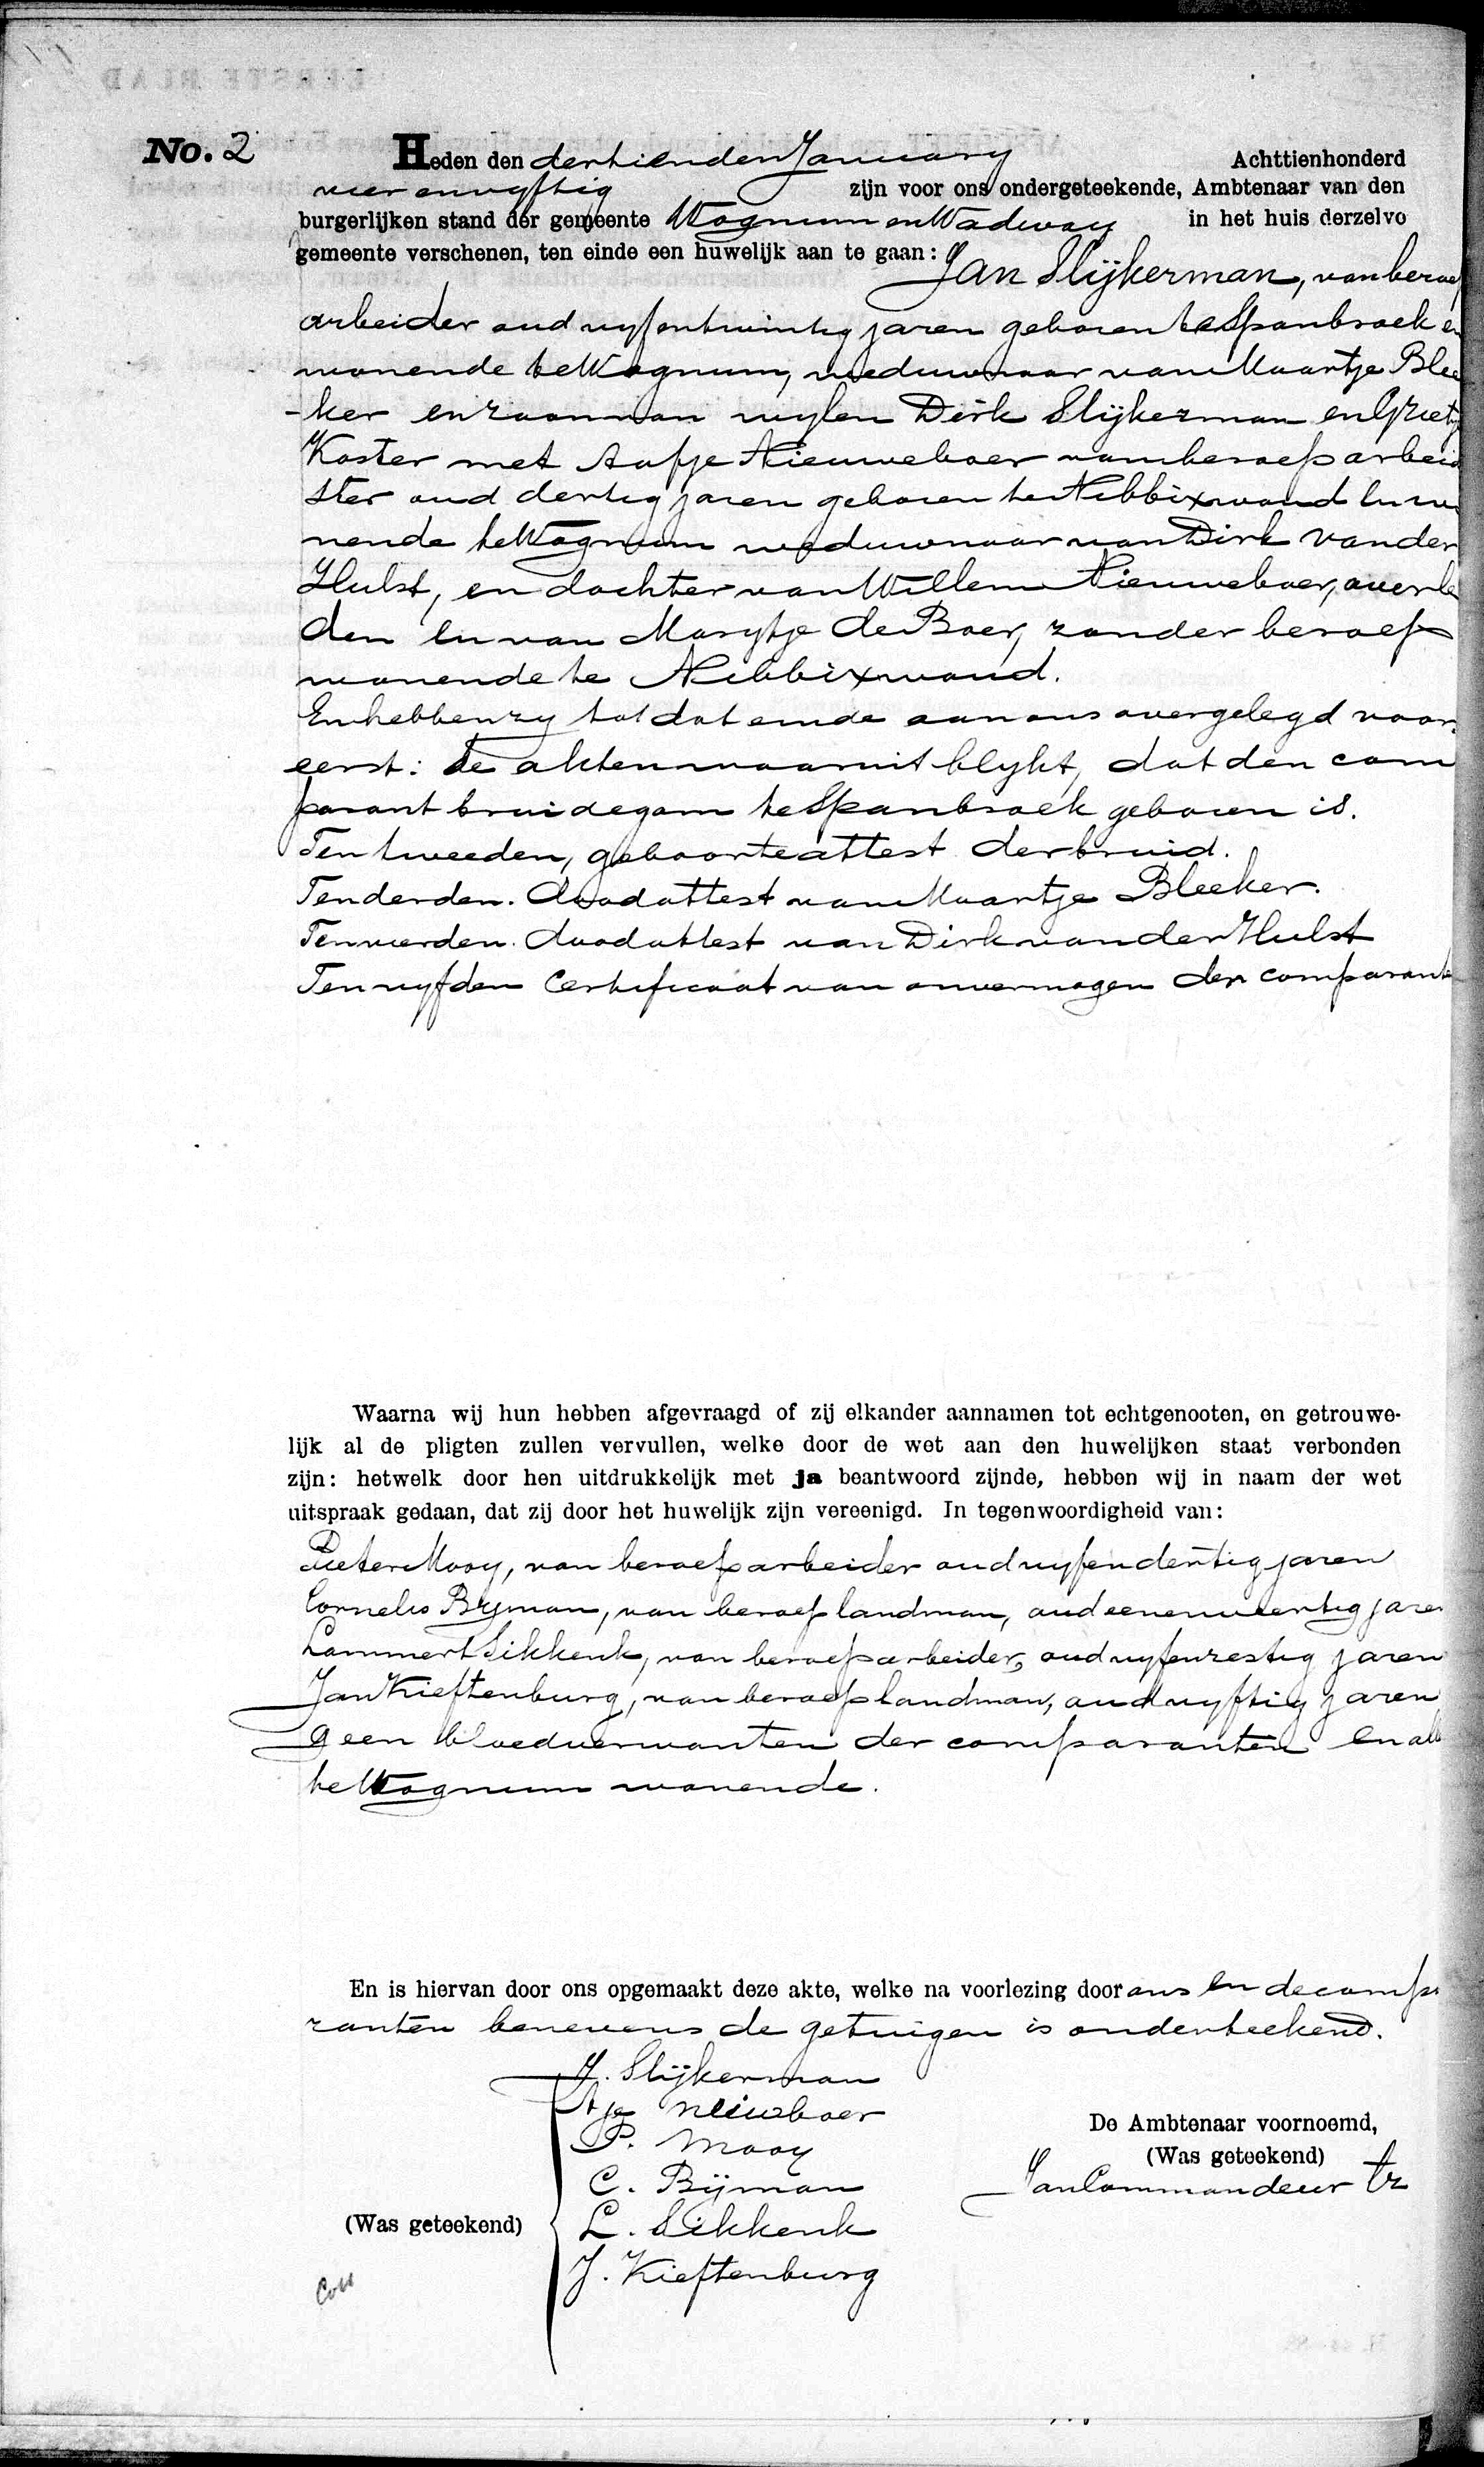 No. 2 Heden den dertienden January Achttienhonderd
vier en vyftig zijn voor ons ondergeteekende, Ambtenaar van den
burgerlijken stand der gemeente Wognum en Wadway in het huis derzelve
gemeente verschenen, ten einde een huwelijk aan te gaan: Jan Slijkerman, van beroep
arbeider oud vyfentwintig jaren geboren te Spanbroek en
wonende te Wognum, weduwnaar van Maartje Blee
-ker en zoon van wylen Dirk Slijkerman en Grietje
Koster met Aafje Nieuweboer van beroep arbeid
ster oud dertig jaren geboren te Nibbixwoud en wo
nende te Wognum weduwnaar van Dirk van der
Hulst, en dochter van Willem Nieuweboer, overle
den en van Marytje de Boer, zonder beroep
wonende te Nibbixwoud.
En hebben zy tot dat einde aan ons overgelegd voor
eerst: de akten waaruit blykt, dat den com
parant bruidegom te Spanbroek geboren is.
Ten tweeden, geboorteattest der bruid.
Ten derden. doodattest van Maartje Bleeker.
Ten vierden. doodattest van Dirk van der Hulst
Ten vyfden Certificaat van onvermogen der comparante
Waarna wij hun hebben afgevraagd of zij elkander aannamen tot echtgenooten, en getrouwe-
lijk al de pligten zullen vervullen, welke door de wet aan den huwelijken staat verbonden
zijn: hetwelk door hen uitdrukkelijk met ja beantwoord zijnde, hebben wij in naam der wet
uitspraak gedaan, dat zij door het huwelijk zijn vereenigd. In tegenwoordigheid van:
Pieter Mooy, van beroep arbeider oud vyfendertig jaren
Cornelis Byman, van beroep landman, oud eenenveertig jaren
Lammert Sikkenk, van beroep arbeider, oud vyfenzestig jaren
Jan Kieftenburg, van beroep landman, oud vyftig jaren
geen bloedverwanten der comparanten en alle
te Wognum wonende.
En is hiervan door ons opgemaakt deze akte, welke na voorlezing door ons en de compa
ranten benevens de getuigen is onderteekend.
J. Slijkerman
Aje Neiwboer
P. Mooy
C. Bijman
L. Sikkenk
J. Kieftenburg
(Was geteekend)
De Ambtenaar voornoemd,
(Was geteekend)
Jan Commandeur Cz